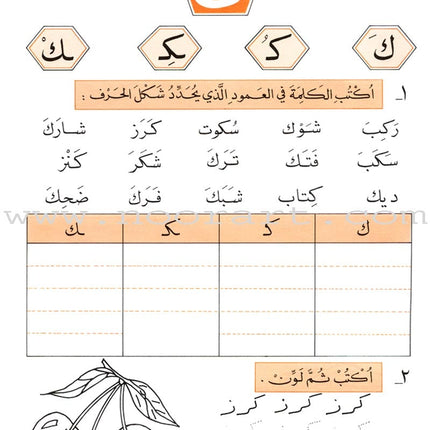 كَ كُـ ـكِـ ـكْ
١_ اُكْتُبِ الكَلِمَةَ في العَمودِ الَّذي يُحَدِّدُ شَكْلَ الحَرْفِ :
رَكِبَ شَوْك سُكوت كَرَز شارَكَ
سَكَبَ فَتَكَ تَرَكَ شَكَرَ كَنْز
ديك كِتاب شَبَكَ فَرَكَ ضَحِكَ
www.noorart.com
ك كـ ـكـ ـك
٢_ اُكْتُبْ ثُمَّ لَوِّنْ .
كرز كرز كرز